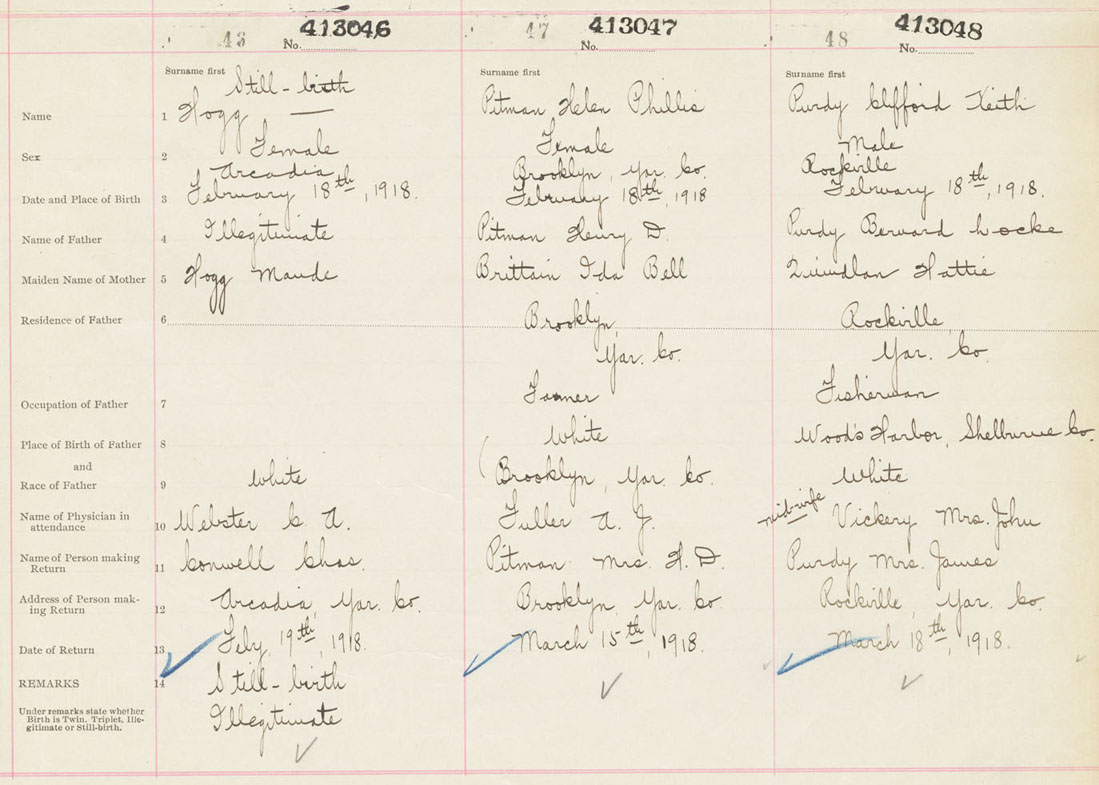 43 413046
No.
47 413047
No.
48 413048
No.
Surname first
Surname first
Surname first
Name 1
Still-birth
Hogg —
Pitman Helen Phillis
Purdy Clifford Keith
Sex 2
Female
Female
Male
Date and Place of Birth 3
Arcadia
February 18th, 1918.
Brooklyn, Yar. Co.
February 18th, 1918
Rockville
February 18th, 1918.
Name of Father 4
Illegitimate
Pitman Henry D.
Purdy Bernard Locke
Maiden Name of Mother 5
Hogg Maude
Brittain Ida Bell
Quindlan Hattie
Residence of Father 6
Brooklyn,
Yar. Co.
Rockville,
Yar. Co.
Occupation of Father 7
Farmer
Fisherman
Place of Birth of Father 8
White
Wood's Harbor, Shelburne Co.
and
Race of Father 9
White
Brooklyn, Yar. Co.
White
Name of Physician in
attendance 10
Webster C. A.
Fuller A. J.
mid-wife Vickery Mrs. John
Name of Person making
Return 11
Conwell Chas.
Pitman Mrs. H. D.
Purdy Mrs. James
Address of Person mak-
ing Return 12
Arcadia, Yar. Co.
Brooklyn, Yar. Co.
Rockville, Yar. Co.
Date of Return 13
Feby, 19th, 1918.
March 15th, 1918.
March 18th, 1918.
REMARKS 14
Still-birth
Illegitimate
Under remarks state whether
Birth is Twin, Triplet, Ille-
gitimate or Still-birth.